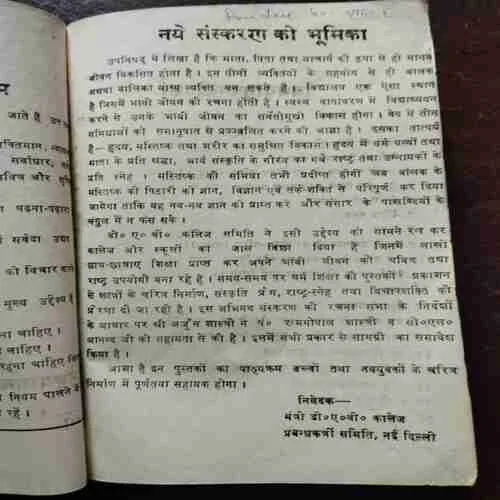 नये संस्करण की भूमिका
उपनिषद् में लिखा है कि माता, पिता तथा आचार्य की कृपा से ही मानव
जीवन विकसित होता है । इन तीनों व्यक्तियों के सहयोग से ही बालक
अथवा बालिका योग्य व्यक्ति बन सकते हैं । विद्यालय एक ऐसा स्थान
है जिसमें भावी जीवन की रचना होती है । स्वस्थ वातावरण में विद्याध्ययन
करने से उनके भावी जीवन का सर्वतोमुखी विकास होगा । वेद में तीन
समिधाओं को समानुपात से प्रज्ज्वलित करने की आज्ञा है । इसका तात्पर्य
है—हृदय, मस्तिष्क तथा शरीर का समुचित विकास । हृदय में धर्म ग्रन्थों तथा
माता के प्रति श्रद्धा, आर्य संस्कृति के गौरव का गर्व राष्ट्र तथा
प्रति स्नेह । मस्तिष्क की समिधा तभी प्रदीप्त होगी जब बालक के
मस्तिष्क की पिटारी को ज्ञान, विज्ञान एवं तर्क-शक्ति से परिपूर्ण कर दिया
जायेगा ताकि वह नव-नव ज्ञान को प्राप्त करे और संसार के पाखण्डियों के
चंगुल में न फंस सके ।
डी० ए० वी० कालेज समिति ने इसी उद्देश्य को सामने रख कर
कालेज और स्कूलों का जाल बिछा दिया है जिनमें लाखों
छात्र-छात्राएं शिक्षा प्राप्त कर अपने भावी जीवन को चरित्र तथा
राष्ट्र उपयोगी बना रहे हैं । समय-समय पर धर्म शिक्षा की पुस्तकों प्रकाशन
से छात्रों के चरित्र निर्माण, संस्कृति प्रेम, राष्ट्र-स्नेह तथा विचारशक्ति को
प्रेरणा दी जा रही है । इस अभिनव संस्करण की रचना सभा के निर्देशों
के आधार पर श्री अर्जुन शास्त्री ने पं० रामगोपाल शास्त्री व सी०एल०
आनन्द जी की सहायता से की है । इसमें सभी प्रकार से सामग्री का समावेश
किया है ।
आशा है इन पुस्तकों का पाठ्यक्रम बच्चों तथा नवयुवकों के चरित्र
निर्माण में पूर्णतया सहायक होगा ।
निवेदक—
मंत्री डी०ए०वी० कालेज
प्रबन्धकर्त्री समिति, नई दिल्ली
जाते हैं
सर्वाधार
पढ़ना-पढ़ाना
सर्वदा उद्यत
को विचार करके
मुख्य उद्देश्य है
चाहिए ।
चाहिए ।
रहना चाहिए
नियम पालने में
रहें ।